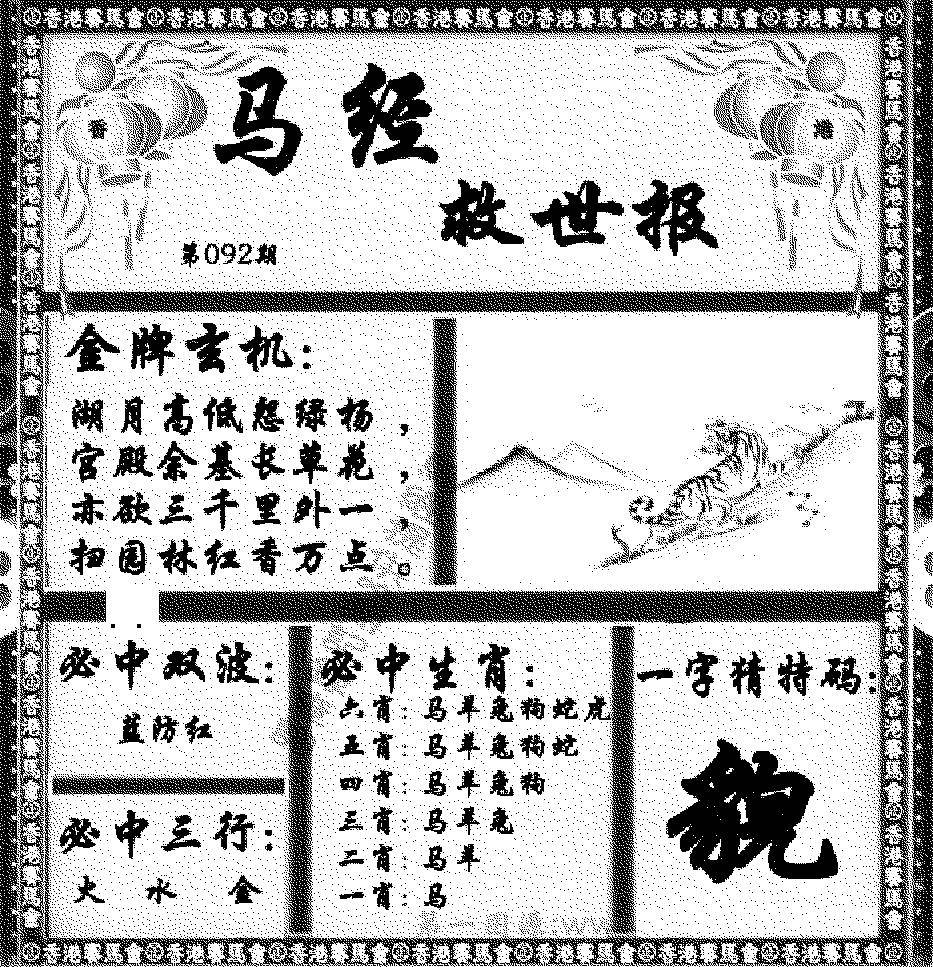 香港赛馬會 香港赛馬會 香港赛馬會 香港赛馬會 香港赛馬會 香港赛馬會 香港赛馬會
香
港
马经
救世报
第092期
金牌玄机:
湖月高低怨绿杨,
宫殿余基长草花,
亦欲三千里外一,
扫园林红香万点。
必中双波:
蓝防红
必中三行:
火 水 金
必中生肖:
六肖:马羊兔狗蛇虎
五肖:马羊兔狗蛇
四肖:马羊兔狗
三肖:马羊兔
二肖:马羊
一肖:马
一字精特码:
貌
香港赛馬會 香港赛馬會 香港赛馬會 香港赛馬會 香港赛馬會 香港赛馬會 香港赛馬會